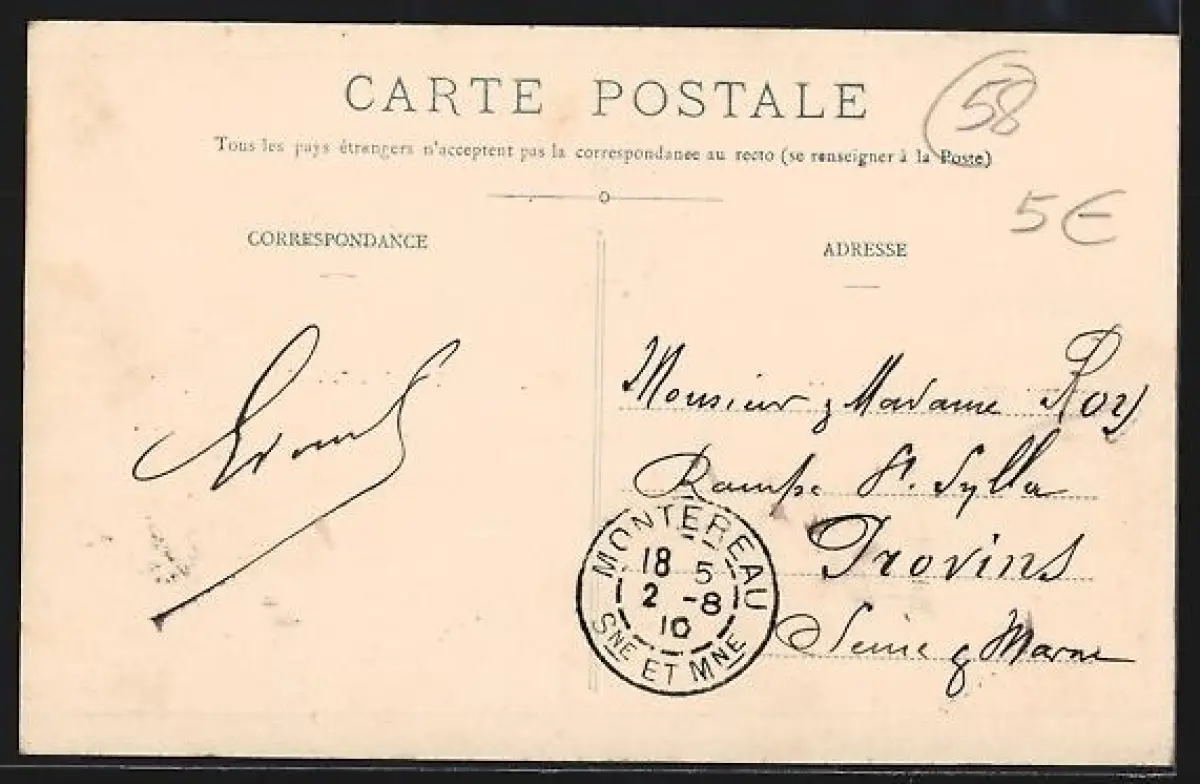 CARTE POSTALE
58
Tous les pays étrangers n'acceptent pas la correspondance au recto (se renseigner à la Poste)
5€
CORRESPONDANCE
ADRESSE
Monsieur & Madame Roy
Rampe St. Sylla
Provins
Seine & Marne
MONTEREAU
18 5
2 -8
10
SNE ET MNE